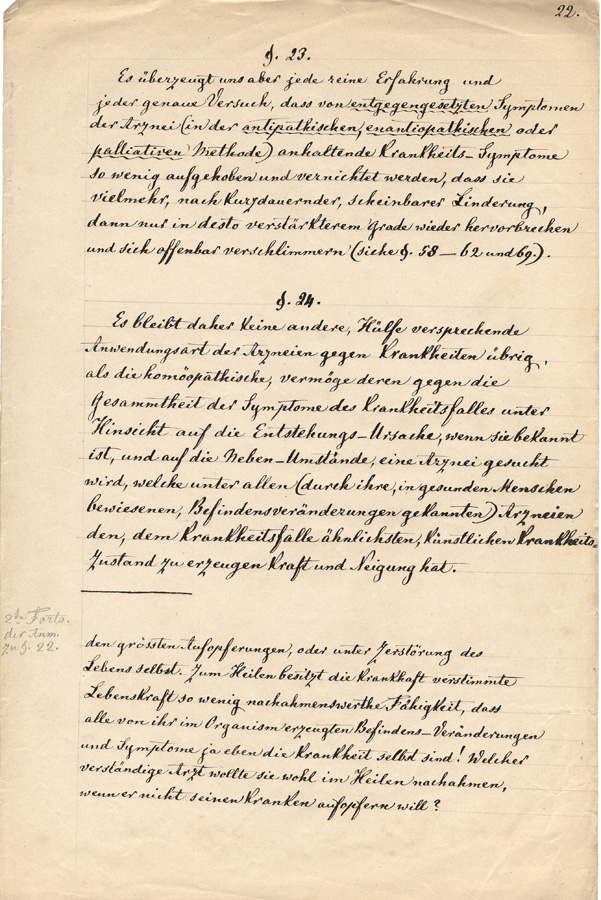 22.
§. 23.
Es überzeugt uns aber jede reine Erfahrung und
jeder genaue Versuch, dass von entgegengesetzten Symptomen
der Arznei (in der antipathischen, enantiopathischen oder
palliativen Methode) anhaltende Krankheits-Symptome
so wenig aufgehoben und vernichtet werden, dass sie
vielmehr, nach kurzdauernder, scheinbarer Linderung,
dann nur in desto verstärkterem Grade wieder hervorbrechen
und sich offenbar verschlimmern (siehe §. 58 — 62 und 69.).
§. 24.
Es bleibt daher keine andere, Hülfe versprechende
Anwendungsart der Arzneien gegen Krankheiten übrig,
als die homöopathische, vermöge deren gegen die
Gesammtheit der Symptome des Krankheitsfalles unter
Hinsicht auf die Entstehungs-Ursache, wenn sie bekannt
ist, und auf die Neben-Umstände, eine Arznei gesucht
wird, welche unter allen (durch ihre, in gesunden Menschen
bewiesenen, Befindensveränderungen gekannten) Arzneien
den, dem Krankheitsfalle ähnlichsten, künstlichen Krankheits-
Zustand zu erzeugen Kraft und Neigung hat.
2te Forts.
der Anm.
zu §. 22.
den grössten Aufopferungen, oder unter Zerstörung des
Lebens selbst. Zum Heilen besitzt die krankhaft verstimmte
Lebenskraft so wenig nachahmenswerthe Fähigkeit, dass
alle von ihr im Organism erzeugten Befindens-Veränderungen
und Symptome ja eben die Krankheit selbst sind! Welcher
verständige Arzt wollte sie wohl im Heilen nachahmen,
wenn er nicht seinen Kranken aufopfern will?